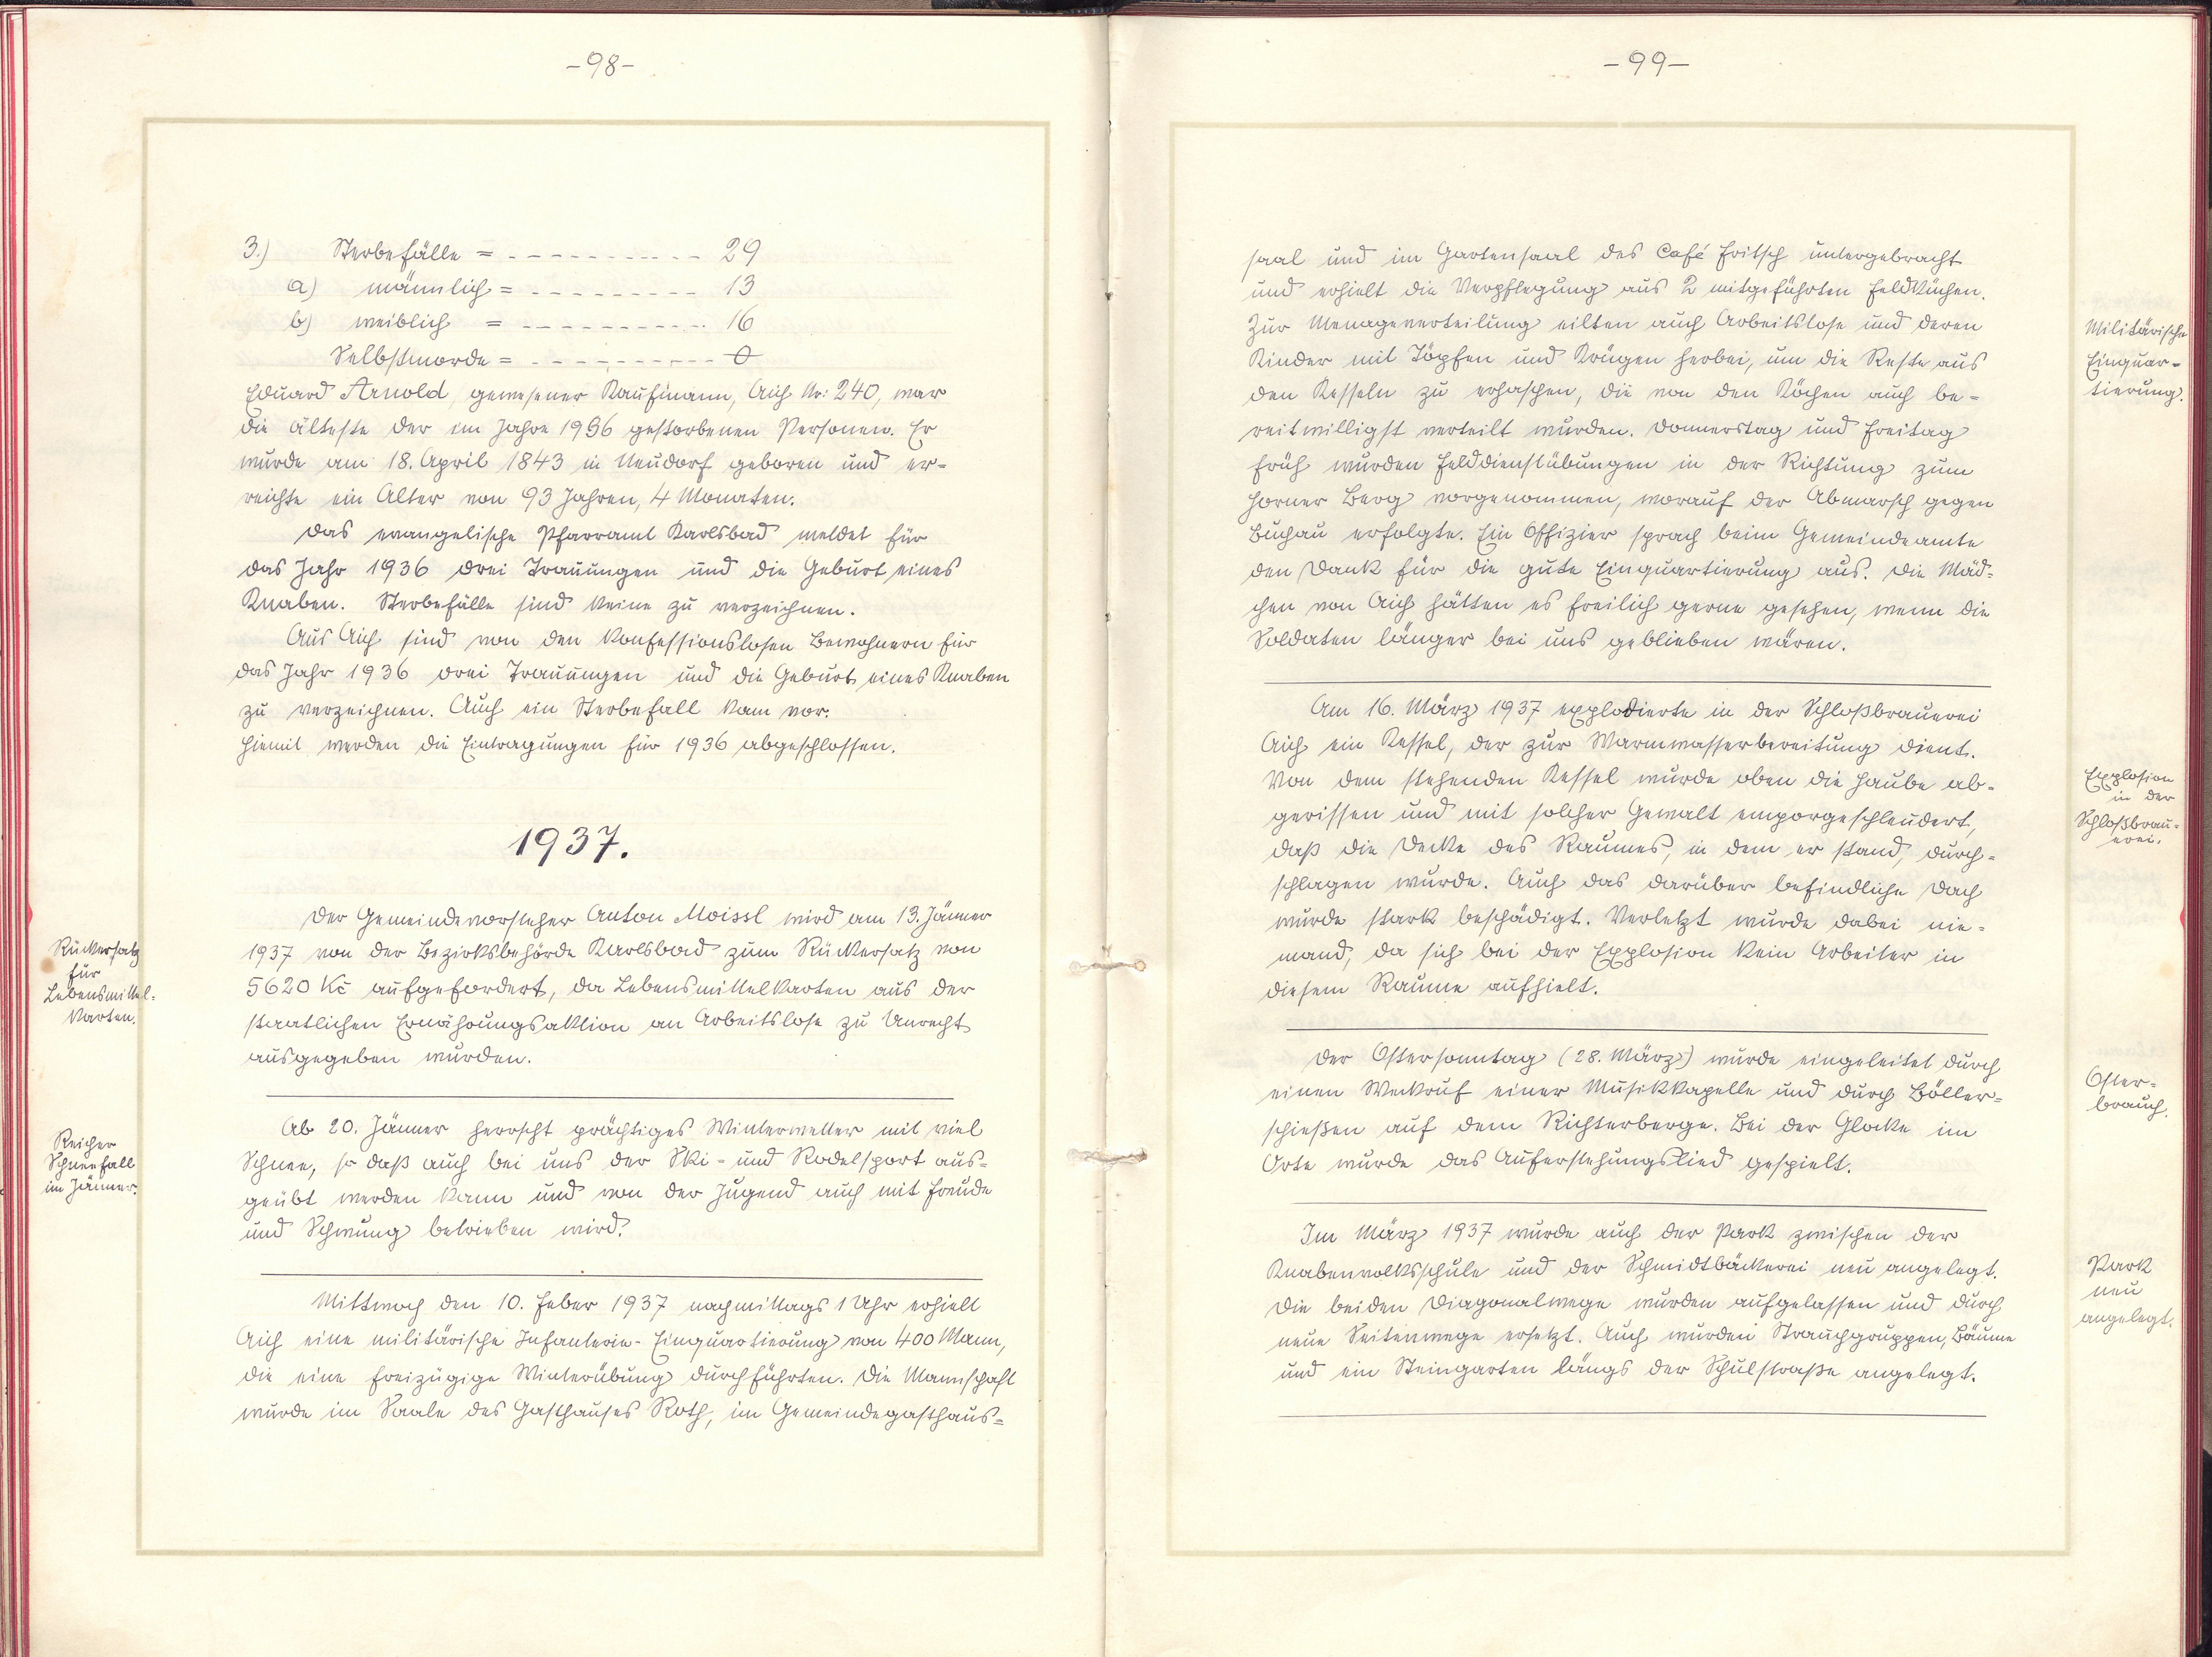 -98-
3.) Sterbefälle = - - - - - - - - - - - 29
a) männlich = - - - - - - - - - 13
b) weiblich = - - - - - - - - - - 16
Selbstmorde = - - - - - - - - - - 0
Eduard Arnold, gewesener Kaufmann, Aich Nr. 240, war
die älteste der im Jahre 1936 gestorbenen Personen. Er
wurde am 18. April 1843 in Neudorf geboren und er-
reichte ein Alter von 93 Jahren, 4 Monaten.
Das evangelische Pfarramt Karlsbad meldet für
das Jahr 1936 drei Trauungen und die Geburt eines
Knaben. Sterbefälle sind keine zu verzeichnen.
Aus Aich sind von den konfessionslosen Bewohnern für
das Jahr 1936 drei Trauungen und die Geburt eines Knaben
zu verzeichnen. Auch ein Sterbefall kam vor.
Hiemit werden die Eintragungen für 1936 abgeschlossen.
1937.
Rückersatz
für
Lebensmittel-
karten.
Der Gemeindevorsteher Anton Moissl wird am 13. Jänner
1937 von der Bezirksbehörde Karlsbad zum Rückersatz von
5620 Kč aufgefordert, da Lebensmittelkarten aus der
staatlichen Ernährungsaktion an Arbeitslose zu Unrecht
ausgegeben wurden.
Reicher
Schneefall
im Jänner.
Ab 20. Jänner herrscht prächtiges Winterwetter mit viel
Schnee, so daß auch bei uns der Ski- und Rodelsport aus-
geübt werden kann und von der Jugend auch mit Freude
und Schwung betrieben wird.
Mittwoch den 10. Feber 1937 nachmittags 1 Uhr erhielt
Aich eine militärische Infanterie-Einquartierung von 400 Mann,
die eine freizügige Winterübung durchführten. Die Mannschaft
wurde im Saale des Gasthauses Roth, im Gemeindegasthaus-
-99-
saal und im Gartensaal des Café Fritsch untergebracht
und erhielt die Verpflegung aus 2 mitgeführten Feldküchen.
Zur Menageverteilung eilten auch Arbeitslose und deren
Kinder mit Töpfen und Krügen herbei, um die Reste aus
den Kesseln zu erhaschen, die von den Köchen auch be-
reitwilligst verteilt wurden. Donnerstag und Freitag
früh wurden Felddienstübungen in der Richtung zum
Horner Berg vorgenommen, worauf der Abmarsch gegen
Buchau erfolgte. Ein Offizier sprach beim Gemeindeamte
den Dank für die gute Einquartierung aus. Die Mäd-
chen von Aich hätten es freilich gerne gesehen, wenn die
Soldaten länger bei uns geblieben wären.
Militärische
Einquar-
tierung.
Am 16. März 1937 explodierte in der Schloßbrauerei
Aich ein Kessel, der zur Warmwasserbereitung dient.
Von dem stehenden Kessel wurde oben die Haube ab-
gerissen und mit solcher Gewalt emporgeschleudert,
daß die Decke des Raumes, in dem er stand, durch-
schlagen wurde. Auch das darüber befindliche Dach
wurde stark beschädigt. Verletzt wurde dabei nie-
mand, da sich bei der Explosion kein Arbeiter in
diesem Raume aufhielt.
Explosion
in der
Schloßbrau-
erei.
Der Ostersonntag (28. März) wurde eingeleitet durch
einen Weckruf einer Musikkapelle und durch Böller-
schießen auf dem Richterberge. Bei der Glocke im
Orte wurde das Auferstehungslied gespielt.
Oster-
brauch.
Im März 1937 wurde auch der Park zwischen der
Knabenvolksschule und der Schmidtbäckerei neu angelegt.
Die beiden Diagonalwege wurden aufgelassen und durch
neue Seitenwege ersetzt. Auch wurden Strauchgruppen, Bäume
und ein Steingarten längs der Schulstraße angelegt.
Park
neu
angelegt.